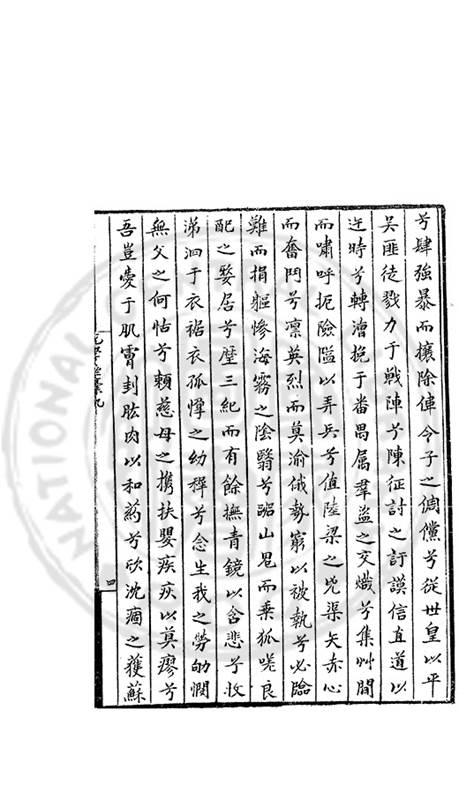 兮肆強暴而攘除俥令子之倜儻兮從世皇以平
吳匪徒戮力于戰陣兮陳征討之訏謨信直道以
迕時兮轉漕挽于番禺属羣盗之交熾兮集艸間
而嘯呼扼險隘以弄兵兮值陸梁之兇渠矢赤心
而奮鬥兮凛英烈而莫渝俄勢窮以被執兮必臨
難而捐軀慘海霧之陰翳兮詔山鬼而乗狐嗟良
配之嫠居兮歷三紀而有餘撫青鏡以含悲兮收
涕泗于衣裾哀孤惸之幼稺兮念生我之劳劬憫
無父之何怙兮頼慈母之携扶嬰疾疢以莫瘳兮
吾豈愛于肌膚刲肱肉以和葯兮欣沈痼之獲蘇
四